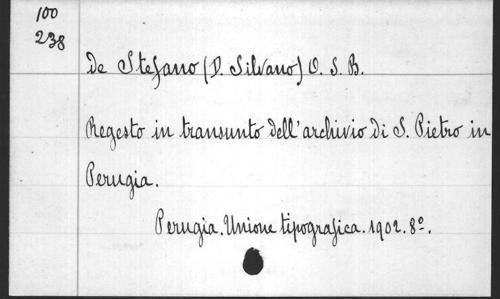 100
238
De Stefano (D. Silvano) O. S. B.
Regesto in transunto dell'archivio di S. Pietro in
Perugia.
Perugia. Unione tipografica. 1902. 8º.